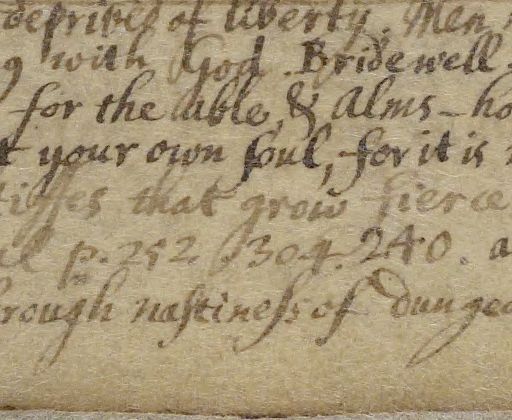 deprived of liberty. Men
g with God. Bridewell
for the able, & Alms-ho
t your own soul, for it is
tiffes that grow fierce
p. 252. 304. 240. a
rough nastiness of dungeo